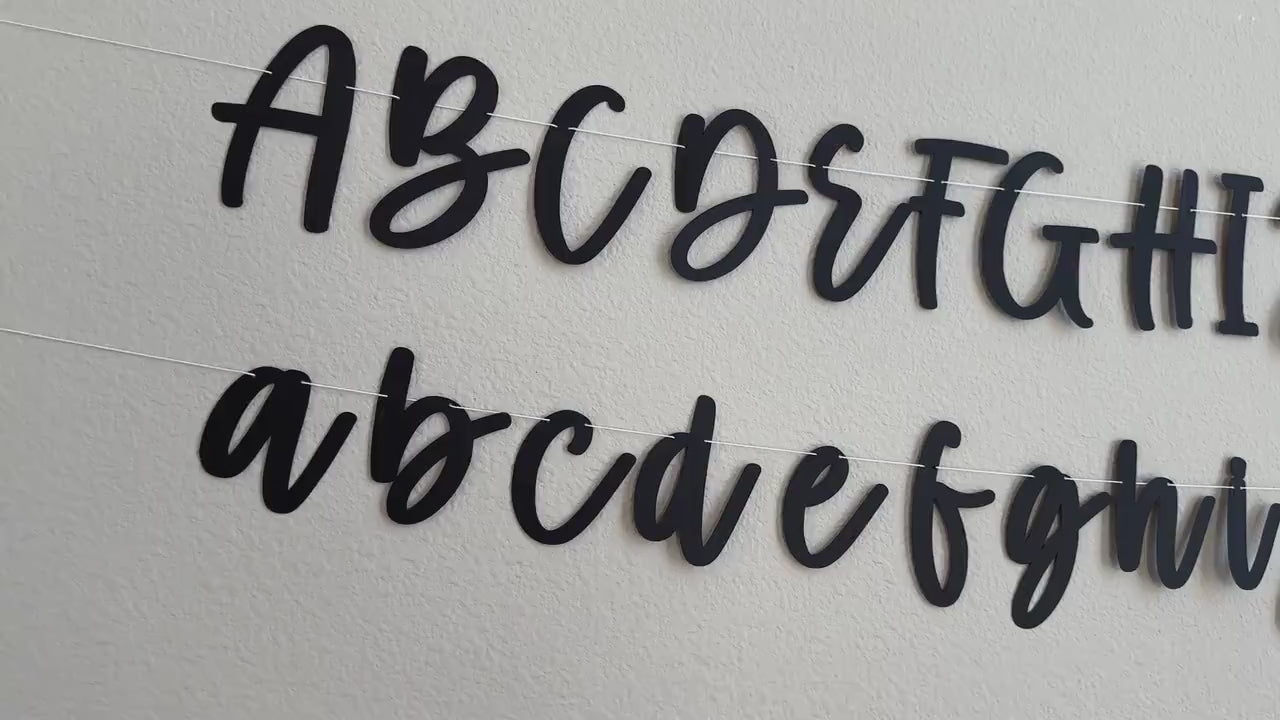 ABCDEFGHI
abcdefghi